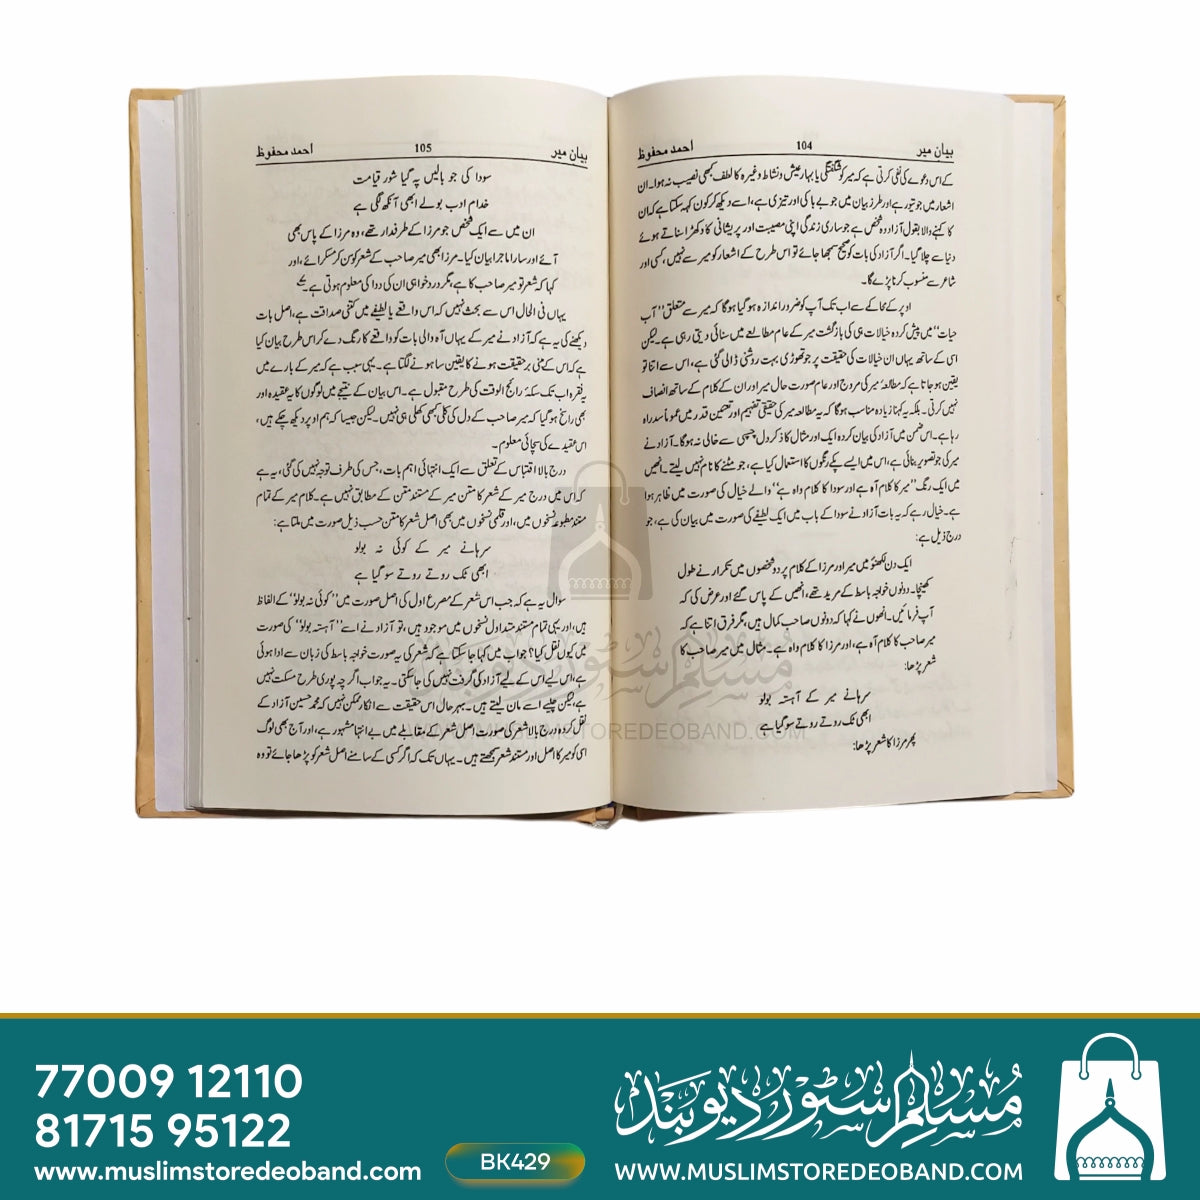 بیان میر 104 احمد محفوظ
کے اس دعوے کی نفی کرتی ہے کہ میر کو شگفتگی یا بہار عیش و نشاط وغیرہ کا لطف کبھی نصیب نہ ہوا۔ ان
اشعار میں جو تیور ہے اور طرز بیان میں جو بے باکی اور تیزی ہے، اسے دیکھ کر کون کہہ سکتا ہے کہ ان
کا کہنے والا بقول آزاد وہ شخص ہے جو ساری زندگی اپنی مصیبت اور پریشانی کا دکھڑا سناتے ہوئے
دنیا سے چلا گیا۔ اگر آزاد کی بات کو صحیح سمجھا جائے تو اس طرح کے اشعار کو میر سے نہیں، کسی اور
شاعر سے منسوب کرنا پڑے گا۔
اوپر کے محاکمے سے اب تک آپ کو ضرور اندازہ ہو گیا ہوگا کہ میر سے متعلق ’’آب
حیات‘‘ میں پیش کردہ خیالات ہی کی بازگشت میر کے عام مطالعے میں سنائی دیتی رہی ہے۔ لیکن
اسی کے ساتھ یہاں ان خیالات کی حقیقت پر جو تھوڑی بہت روشنی ڈالی گئی ہے، اس سے اتنا تو
یقین ہو جاتا ہے کہ مطالعۂ میر کی مروج اور عام صورت حال میر اور ان کے کلام کے ساتھ انصاف
نہیں کرتی۔ بلکہ یہ کہنا زیادہ مناسب ہوگا کہ یہ مطالعہ میر کی حقیقی تفہیم اور تعین قدر میں عموماً سد راہ
رہا ہے۔ اس ضمن میں آزاد کی بیان کردہ ایک اور مثال کا ذکر دل چسپی سے خالی نہ ہوگا۔ آزاد نے
میر کی جو تصویر بنائی ہے، اس میں ایسے پکے رنگوں کا استعمال کیا ہے، جو مٹنے کا نام نہیں لیتے۔ انھیں
میں ایک رنگ ’’میر کا کلام آہ ہے اور سودا کا کلام واہ ہے‘‘ والے خیال کی صورت میں ظاہر ہوا
ہے۔ خیال رہے کہ یہ بات آزاد نے سودا کے باب میں ایک لطیفے کی صورت میں بیان کی ہے، جو
درج ذیل ہے:
ایک دن لکھنؤ میں میر اور مرزا کے کلام پر دو شخصوں میں تکرار نے طول
کھینچا۔ دونوں خواجہ باسط کے مرید تھے، انھیں کے پاس گئے اور عرض کی کہ
آپ فرمائیں۔ انھوں نے کہا کہ دونوں صاحب کمال ہیں، مگر فرق اتنا ہے کہ
میر صاحب کا کلام آہ ہے، اور مرزا کا کلام واہ ہے۔ مثال میں میر صاحب کا
شعر پڑھا:
سرہانے میر کے آہستہ بولو
ابھی ٹک روتے روتے سو گیا ہے
پھر مرزا کا شعر پڑھا:
بیان میر 105 احمد محفوظ
سودا کی جو بالیں پہ گیا شور قیامت
خدام ادب بولے ابھی آنکھ لگی ہے
ان میں سے ایک شخص جو مرزا کے طرفدار تھے، وہ مرزا کے پاس بھی
آئے اور سارا ماجرا بیان کیا۔ مرزا بھی میر صاحب کے شعر کو سن کر مسکرائے، اور
کہا کہ شعر تو میر صاحب کا ہے، مگر درد خواہی ان کی ددا کی معلوم ہوتی ہے۔
یہاں فی الحال اس سے بحث نہیں کہ اس واقعے یا لطیفے میں کتنی صداقت ہے، اصل بات
دیکھنے کی یہ ہے کہ آزاد نے میر کے یہاں آہ والی بات کو واقعے کا رنگ دے کر اس طرح بیان کیا
ہے کہ اس کے مبنی بر حقیقت ہونے کا یقین سا ہونے لگتا ہے۔ یہی سبب ہے کہ میر کے بارے میں
یہ فقرہ اب تک سکۂ رائج الوقت کی طرح مقبول ہے۔ اس بیان کے نتیجے میں لوگوں کا یہ عقیدہ اور
بھی راسخ ہو گیا کہ میر صاحب کے دل کی کلی کبھی کھلی ہی نہیں۔ لیکن جیسا کہ ہم اوپر دیکھ چکے ہیں،
اس عقیدے کی سچائی معلوم۔
درج بالا اقتباس کے تعلق سے ایک انتہائی اہم بات، جس کی طرف توجہ نہیں کی گئی، یہ ہے
کہ اس میں درج میر کے شعر کا متن میر کے مستند متن کے مطابق نہیں ہے۔ کلام میر کے تمام
مستند مطبوعہ نسخوں میں، اور قلمی نسخوں میں بھی اصل شعر کا متن حسب ذیل صورت میں ملتا ہے:
سرہانے میر کے کوئی نہ بولو
ابھی ٹک روتے روتے سو گیا ہے
سوال یہ ہے کہ جب اس شعر کے مصرع اول کی اصل صورت میں ’’کوئی نہ بولو‘‘ کے الفاظ
ہیں، اور یہی تمام مستند متداول نسخوں میں موجود ہیں، تو آزاد نے اسے ’’آہستہ بولو‘‘ کی صورت
میں کیوں نقل کیا؟ جواب میں کہا جا سکتا ہے کہ شعر کی یہ صورت خواجہ باسط کی زبان سے ادا ہوئی
ہے، اس لیے اس کے لیے آزاد کی گرفت نہیں کی جا سکتی۔ یہ جواب اگرچہ پوری طرح مسکت نہیں
ہے، لیکن چلیے اسے مان لیتے ہیں۔ بہر حال اس حقیقت سے انکار ممکن نہیں کہ محمد حسین آزاد کے
نقل کردہ درج بالا شعر کی صورت اصل شعر کے مقابلے میں بے انتہا مشہور ہے، اور آج بھی لوگ
اسی کو میر کا اصل اور مستند شعر سمجھتے ہیں۔ یہاں تک کہ اگر کسی کے سامنے اصل شعر کو پڑھا جائے تو وہ
مسلم سٹور دیوبند
WWW.MUSLIMSTOREDEOBAND.COM
77009 12110
81715 95122
www.muslimstoredeoband.com
BK429
مسلم سٹور دیوبند
WWW.MUSLIMSTOREDEOBAND.COM